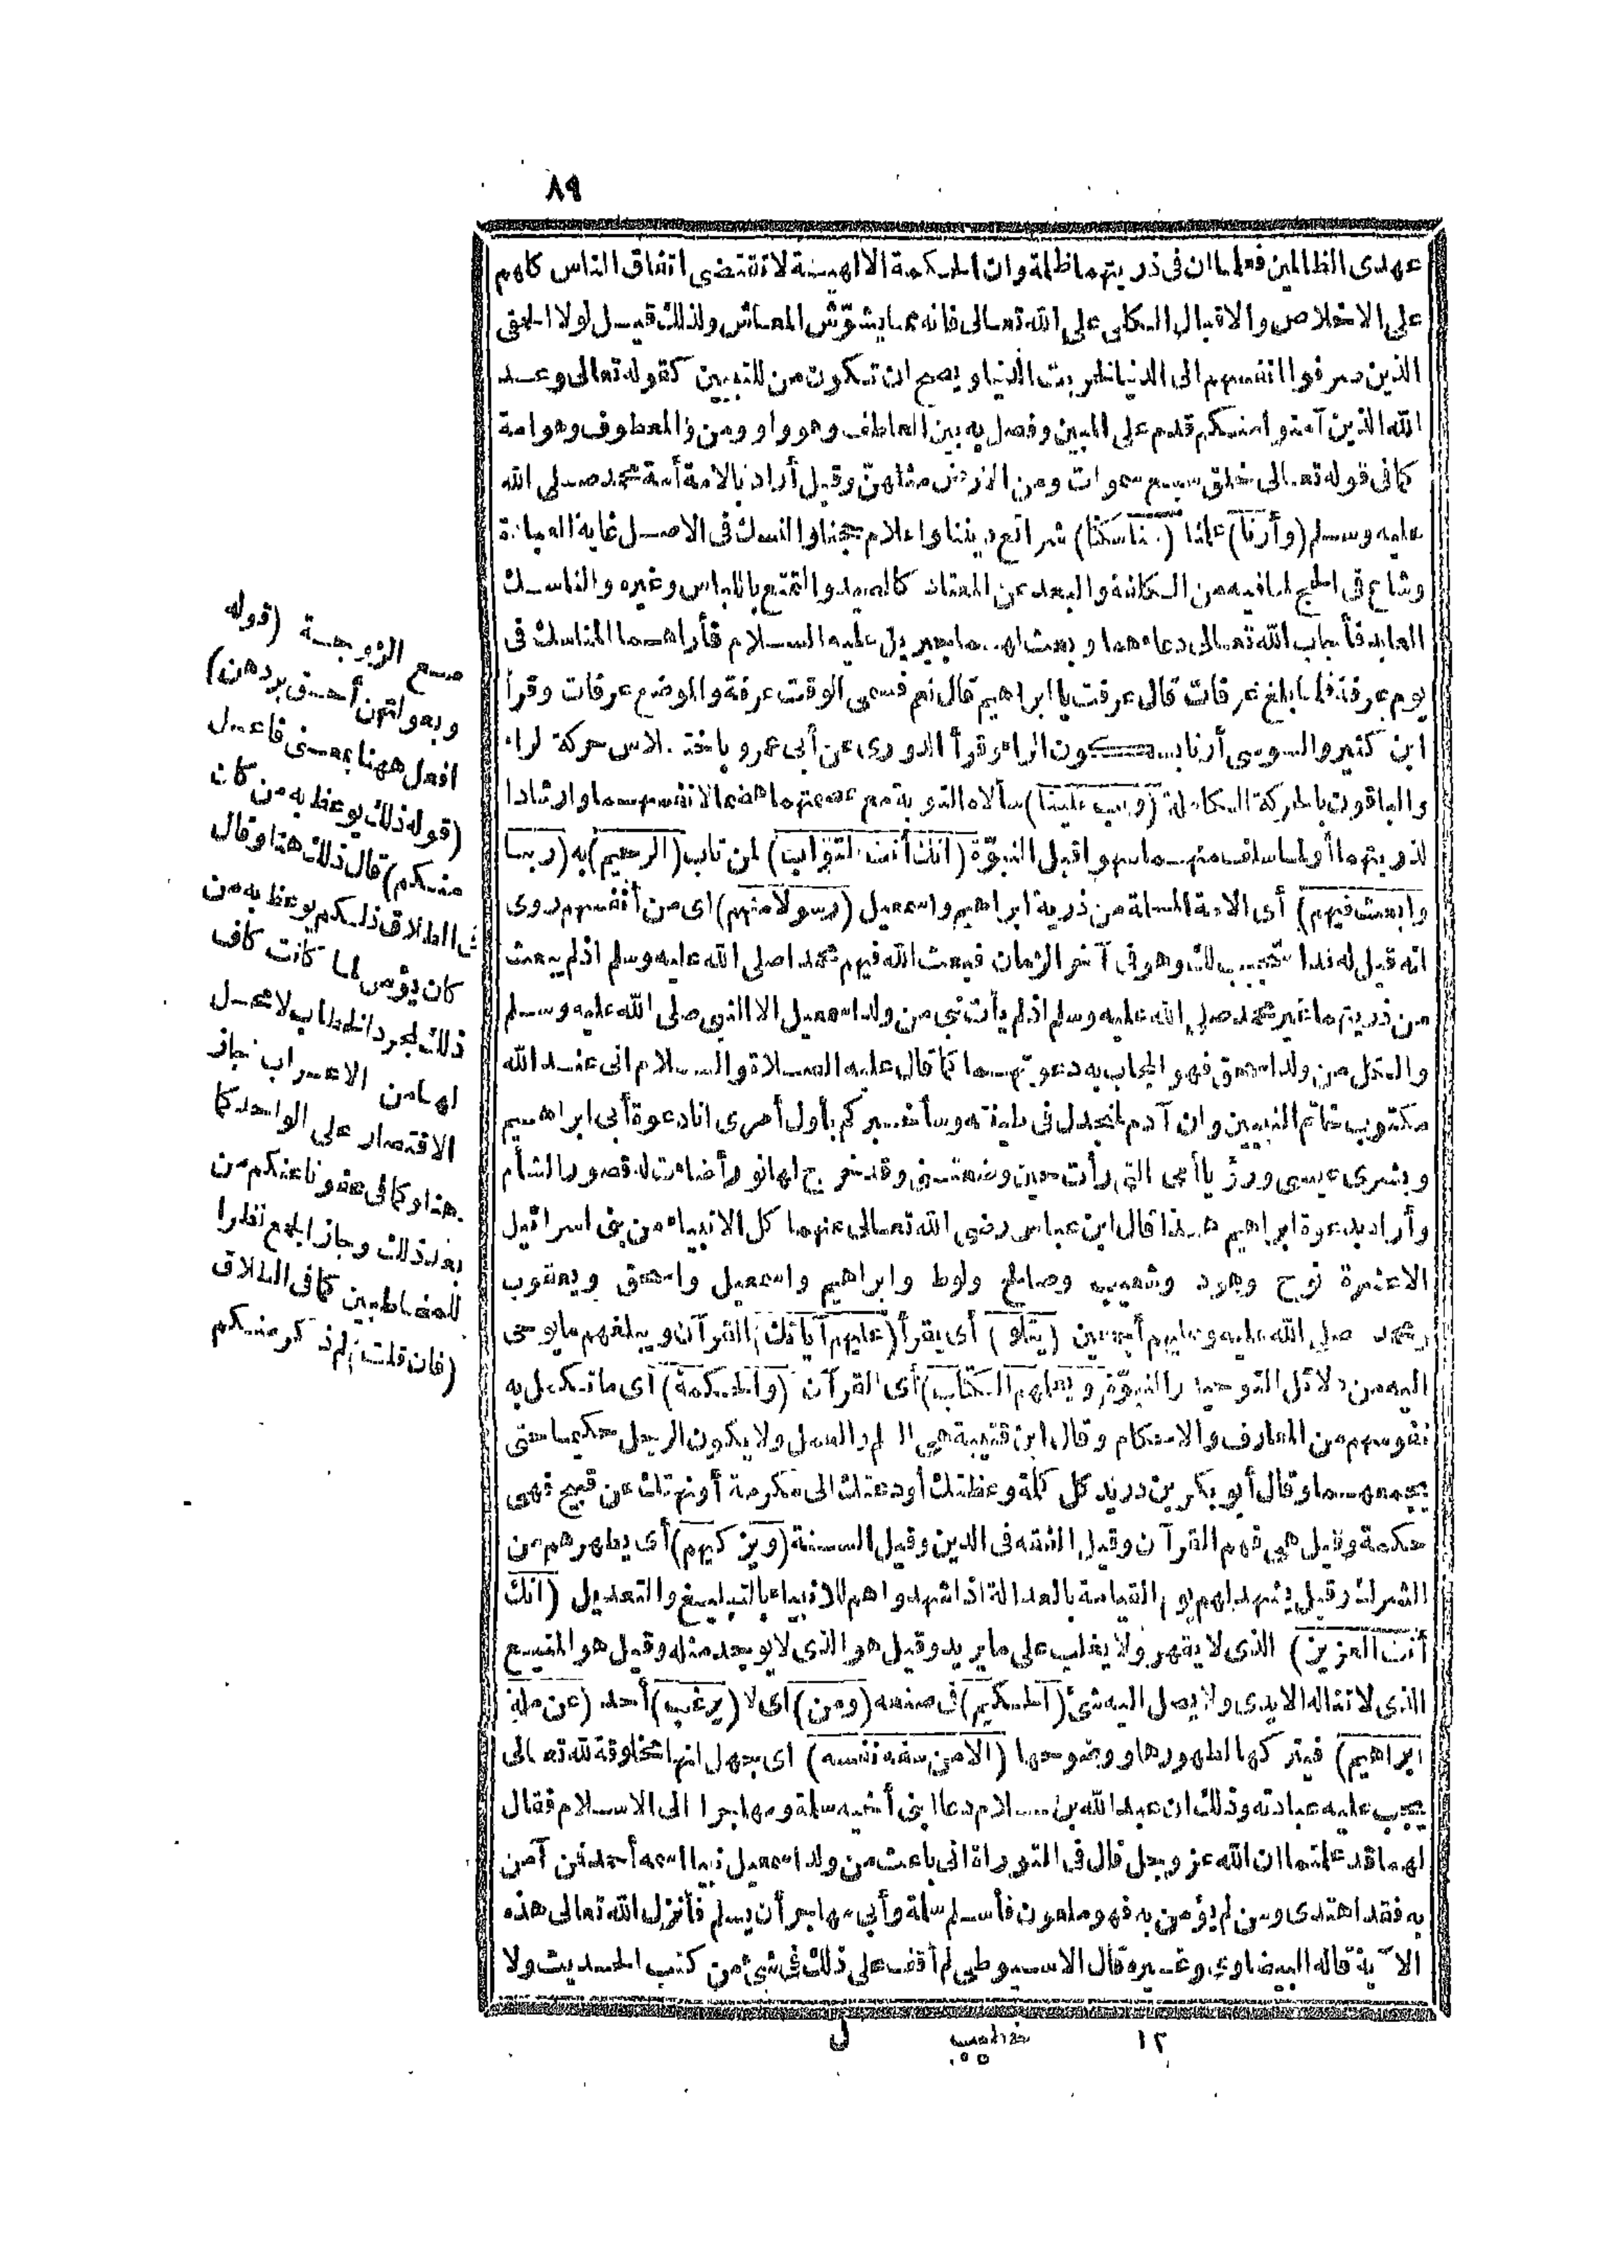 ٨٩
عهدى الظالمين فعلما ان فى ذريتهما ظلمة وان الحكمة الالهية لا تقتضى اتفاق الناس كلهم
على الاخلاص والاقبال الكلى على الله تعالى فانه مما يشوّش المعاش ولذلك قيل لولا الحمقى
الذين صرفوا انفسهم الى الدنيا لخربت الدنيا ويصح ان تكون من للتبيين كقوله تعالى وعد
الله الذين آمنوا منكم قدم على المبين وفصل به بين العاطف وهو واو ومن والمعطوف وهو امة
كما فى قوله تعالى خلق سبع سموات ومن الارض مثلهنّ وقيل أراد بالامة أمة محمد صلى الله
عليه وسلم (وأرنا) علمنا (مناسكنا) شرائع ديننا واعلام حجنا والنسك فى الاصل غاية العبادة
وشاع فى الحج لما فيه من الكلفة والبعد عن المعتاد كالصيد والتمتع باللباس وغيره والناسك
العابد فأجاب الله تعالى دعاءهما وبعث لهما جبريل عليه السلام فأراهما المناسك فى
يوم عرفة فلما بلغ عرفات قال عرفت يا ابراهيم قال نعم فسمى الوقت عرفة والموضع عرفات وقرأ
ابن كثير والسوسى أرنا بسكون الراء وقرأ الدورى عن أبى عمرو باختلاس حركة الراء
والباقون بالحركة الكاملة (وتب علينا) سألاه التوبة مع عصمتهما هضما لانفسهما وارشادا
لذريتهما أو لما سلف منهما سهوا قبل النبوّة (انك أنت التوّاب) لمن تاب (الرحيم) به (ربنا
وابعث فيهم) أى الامة المسلمة من ذرية ابراهيم واسمعيل (رسولا منهم) اى من أنفسهم روى
انه قيل له قد استجيب لك وهو فى آخر الزمان فبعث الله فيهم محمدا صلى الله عليه وسلم اذ لم يبعث
من ذريتهما غير محمد صلى الله عليه وسلم اذ لم يأت نبى من ولد اسمعيل الا النبى صلى الله عليه وسلم
والكل من ولد اسحق فهو المجاب به دعوتهما كما قال عليه الصلاة والسلام انى عند الله
مكتوب خاتم النبيين وان آدم لمنجدل فى طينته وسأخبركم بأول أمرى انا دعوة أبى ابراهيم
وبشرى عيسى ورؤيا أمى التى رأت حين وضعتنى وقد خرج لها نور أضاءت له قصور الشأم
وأراد بدعوة ابراهيم هذا قال ابن عباس رضى الله تعالى عنهما كل الانبياء من بنى اسرائيل
الا عشرة نوح وهود وشعيب وصالح ولوط وابراهيم واسمعيل واسحق ويعقوب
ومحمد صلى الله عليه وعليهم أجمعين (يتلو) أى يقرأ (عليهم آياتك) القرآن ويبلغهم ما يوحى
اليه من دلائل التوحيد والنبوّة (ويعلمهم الكتاب) أى القرآن (والحكمة) أى ما تكمل به
نفوسهم من المعارف والاحكام وقال ابن قتيبة هى العلم والعمل ولا يكون الرجل حكيما حتى
يجمعهما وقال أبو بكر بن دريد كل كلمة وعظتك أو دعتك الى مكرمة أو نهتك عن قبيح فهى
حكمة وقيل هى فهم القرآن وقيل الفقه فى الدين وقيل السنة (ويزكيهم) أى يطهرهم من
الشرك وقيل يشهد لهم يوم القيامة بالعدالة اذا شهدوا هم للانبياء بالتبليغ والتعديل (انك
أنت العزيز) الذى لا يقهر ولا يغلب على ما يريد وقيل هو الذى لا يوجد مثله وقيل هو المنيع
الذى لا تناله الايدى ولا يصل اليه شئ (الحكيم) فى صنعه (ومن) اى لا (يرغب) أحد (عن ملة
ابراهيم) فيتركها لظهورها ووضوحها (الا من سفه نفسه) اى جهل انها مخلوقة لله تعالى
يجب عليه عبادته وذلك ان عبد الله بن سلام دعا ابنى أخيه سلمة ومهاجرا الى الاسلام فقال
لهما قد علمتما ان الله عز وجل قال فى التوراة انى باعث من ولد اسمعيل نبيا اسمه أحمد فمن آمن
به فقد اهتدى ومن لم يؤمن به فهو ملعون فأسلم سلمة وأبى مهاجر أن يسلم فأنزل الله تعالى هذه
الآية قاله البيضاوى وغيره قال الاسيوطى لم أقف على ذلك فى شئ من كتب الحديث ولا
١٢ خطيب ل
مع الزوجة (قوله
وبعولتهن أحق بردهن)
افعل ههنا بمعنى فاعل
(قوله ذلك يوعظ به من كان
منكم) قال ذلك هنا وقال
فى الطلاق ذلكم يوعظ به من
كان يؤمن لما كانت كاف
ذلك لمجرد الخطاب لا محل
لها من الاعراب جاز
الاقتصار على الواحد كما
هنا وكما فى عفونا عنكم من
بعد ذلك وجاز الجمع نظرا
للمخاطبين كما فى الطلاق
(فان قلت) لم ذكر منكم